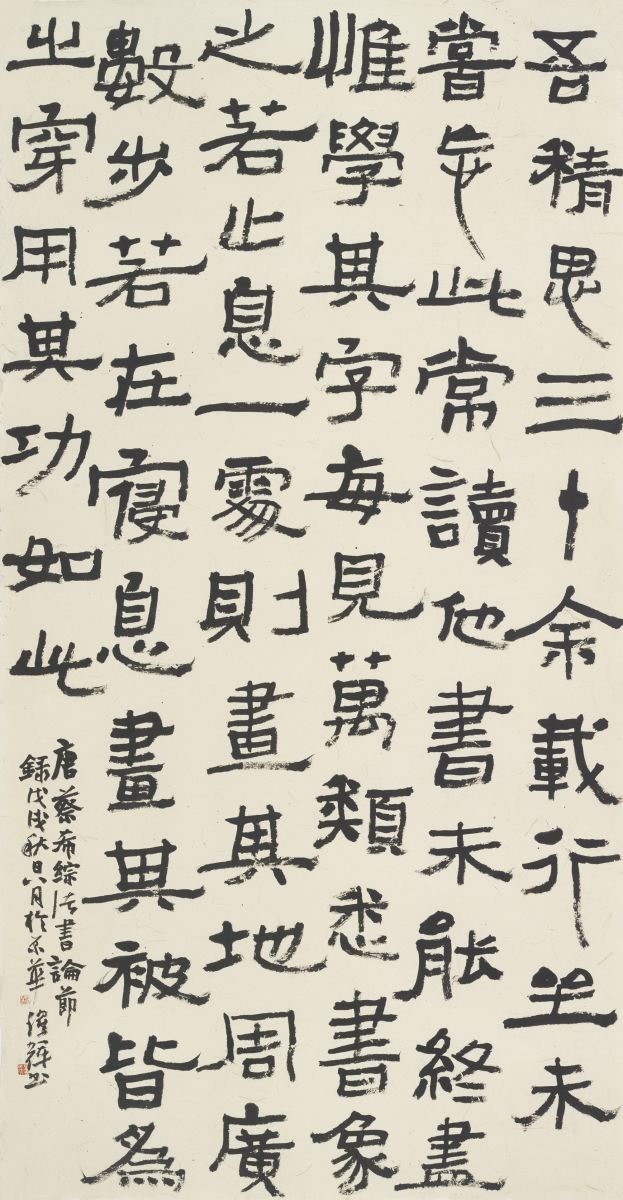 吾精思三十余載行坐未
嘗忘此常讀他書未能終盡
惟學其字每見萬類悉書象
之若止息一處則畫其地周廣
數步若在寝息畫其被皆為
之穿用其功如此
唐蔡希綜法書論節
録戊戌秋日八月於京華